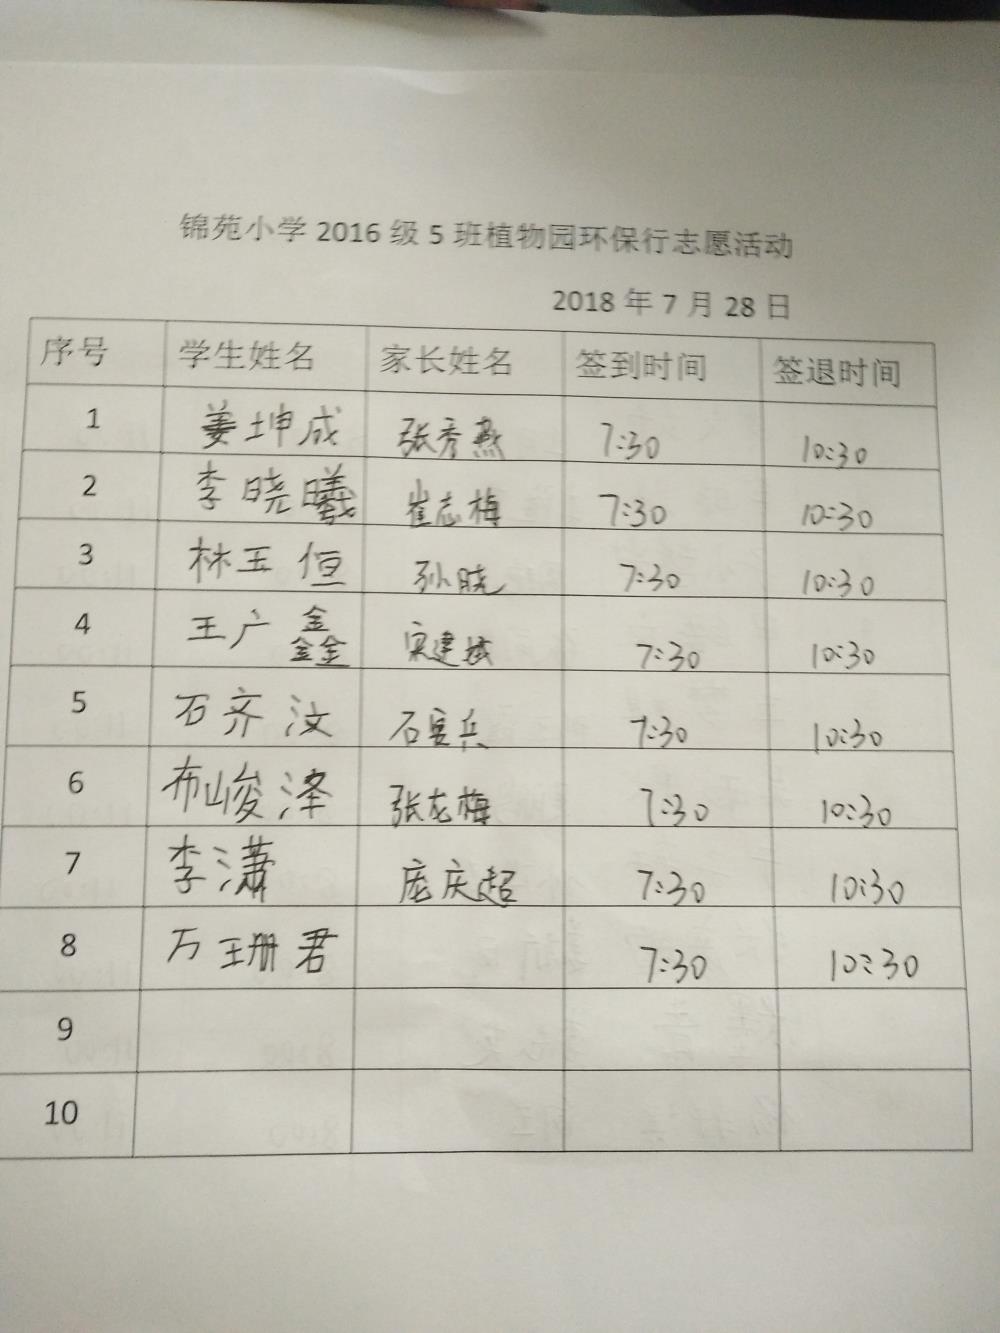 锦苑小学 2016 级 5 班植物园环保行志愿活动
2018 年 7 月 28 日
序号 学生姓名 家长姓名 签到时间 签退时间
1 姜坤成 张秀燕 7:30 10:30
2 李晓曦 崔志梅 7:30 10:30
3 林玉恒 孙晓 7:30 10:30
4 王广鑫 宋建斌 7:30 10:30
5 石齐汶 7:30 10:30
6 布峻泽 张龙梅 7:30 10:30
7 李潇 庞庆超 7:30 10:30
8 万珊君 7:30 10:30
9
10